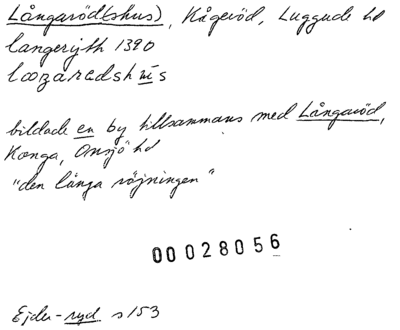 Långarödshus), Kågeröd, Luggude hd
langeryth 1390
lɔŋaredshʉs
bildade en by tillsammans med Långaröd,
Konga, Onsjö hd
"den långa röjningen"
00028056
Ejder-ryd s 153